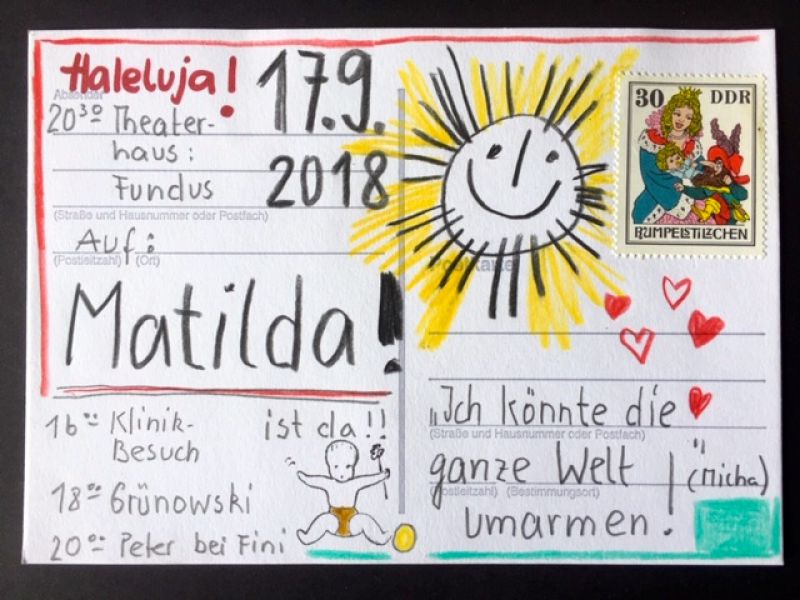 Haleluja!
17.9.
2018
Absender
20³⁰ Theater-
haus:
Fundus
(Straße und Hausnummer oder Postfach)
Auf:
(Postleitzahl) (Ort)
Matilda!
ist da!!
16⁰⁰ Klinik-
Besuch
18⁰⁰ Grünowski
20⁰⁰ Peter bei Fini
30 DDR
RUMPELSTILZCHEN
Postkarte
„Ich könnte die
(Straße und Hausnummer oder Postfach)
ganze Welt
(Postleitzahl) (Bestimmungsort)
umarmen!" (Micha)